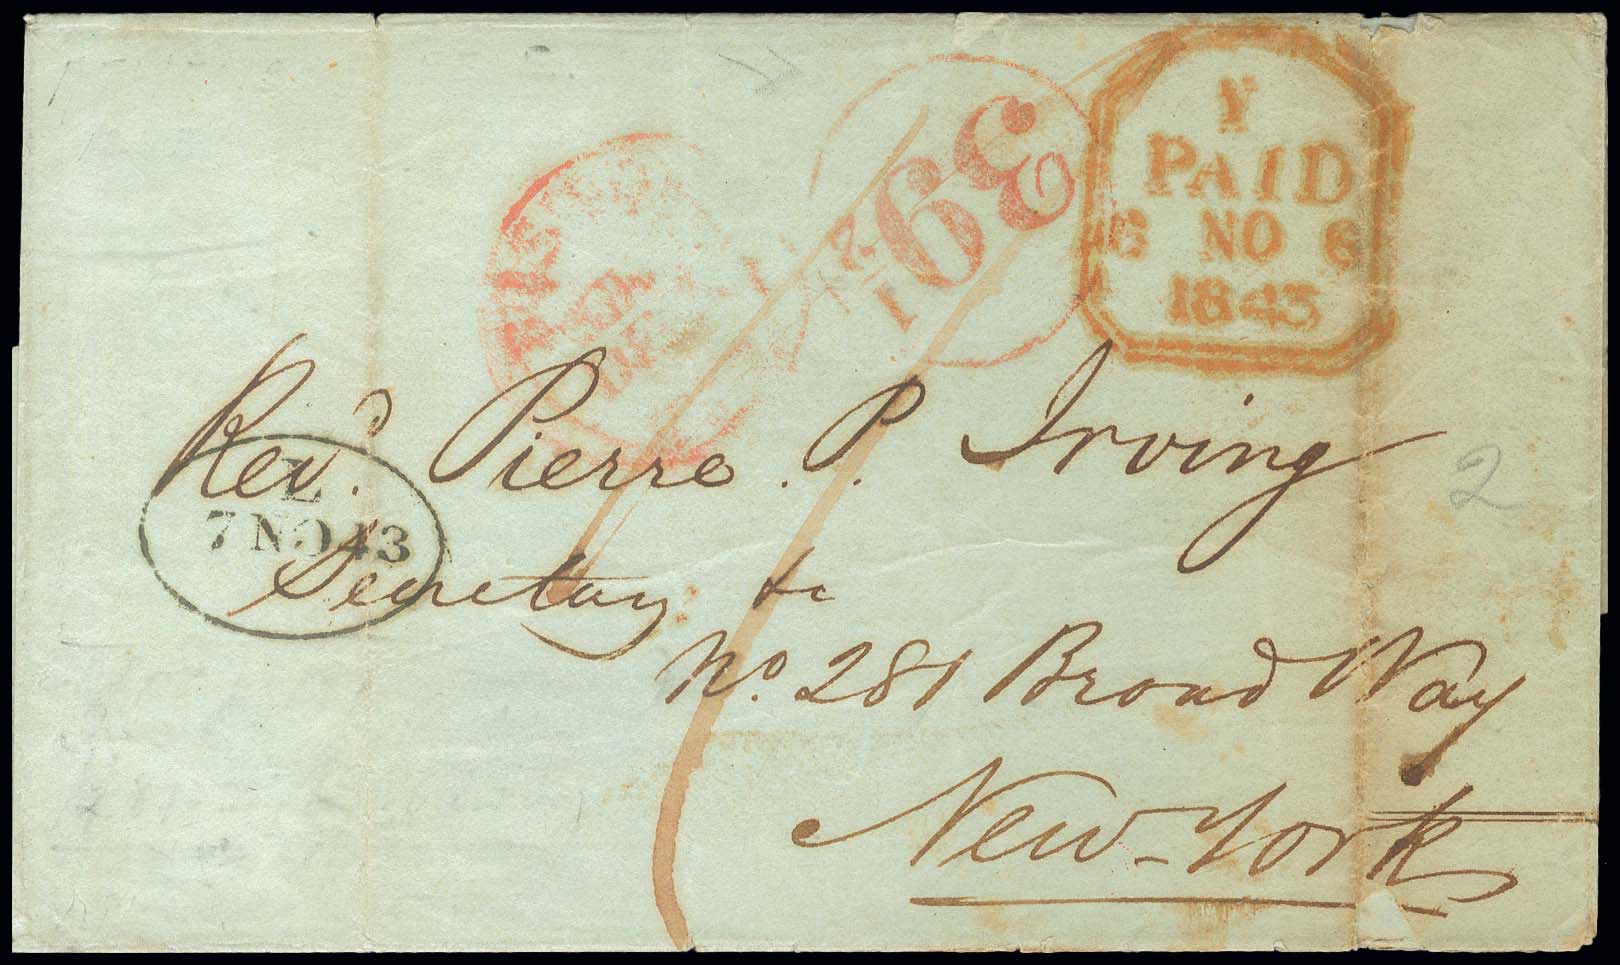 Y
PAID
6 NO 6
1843
39 1/2
Revd. Pierre. P. Irving
L
7 NO 43
Secretary &c
No. 281 Broad Way
New-York
2